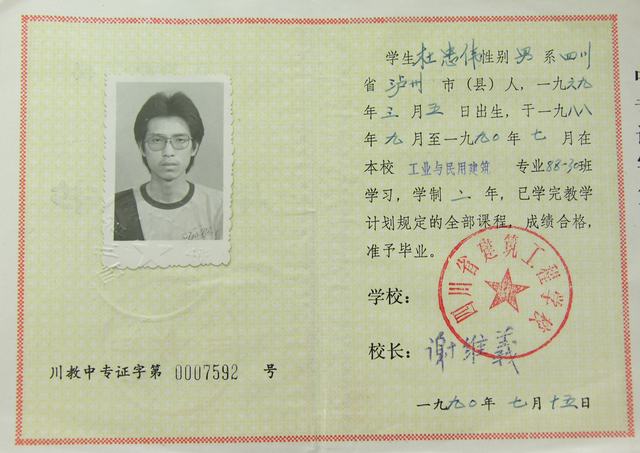 学生杜忠伟性别男系四川
省泸州市（县）人，一九六九
年三月五日出生，于一九八八
年九月至一九九〇年七月在
本校 工业与民用建筑 专业88-30班
学习，学制二年，已学完教学
计划规定的全部课程，成绩合格，
准予毕业。
学校：
四川省建筑工程学校
校长：谢维義
川教中专证字第 0007592 号
一九九〇年七月十五日